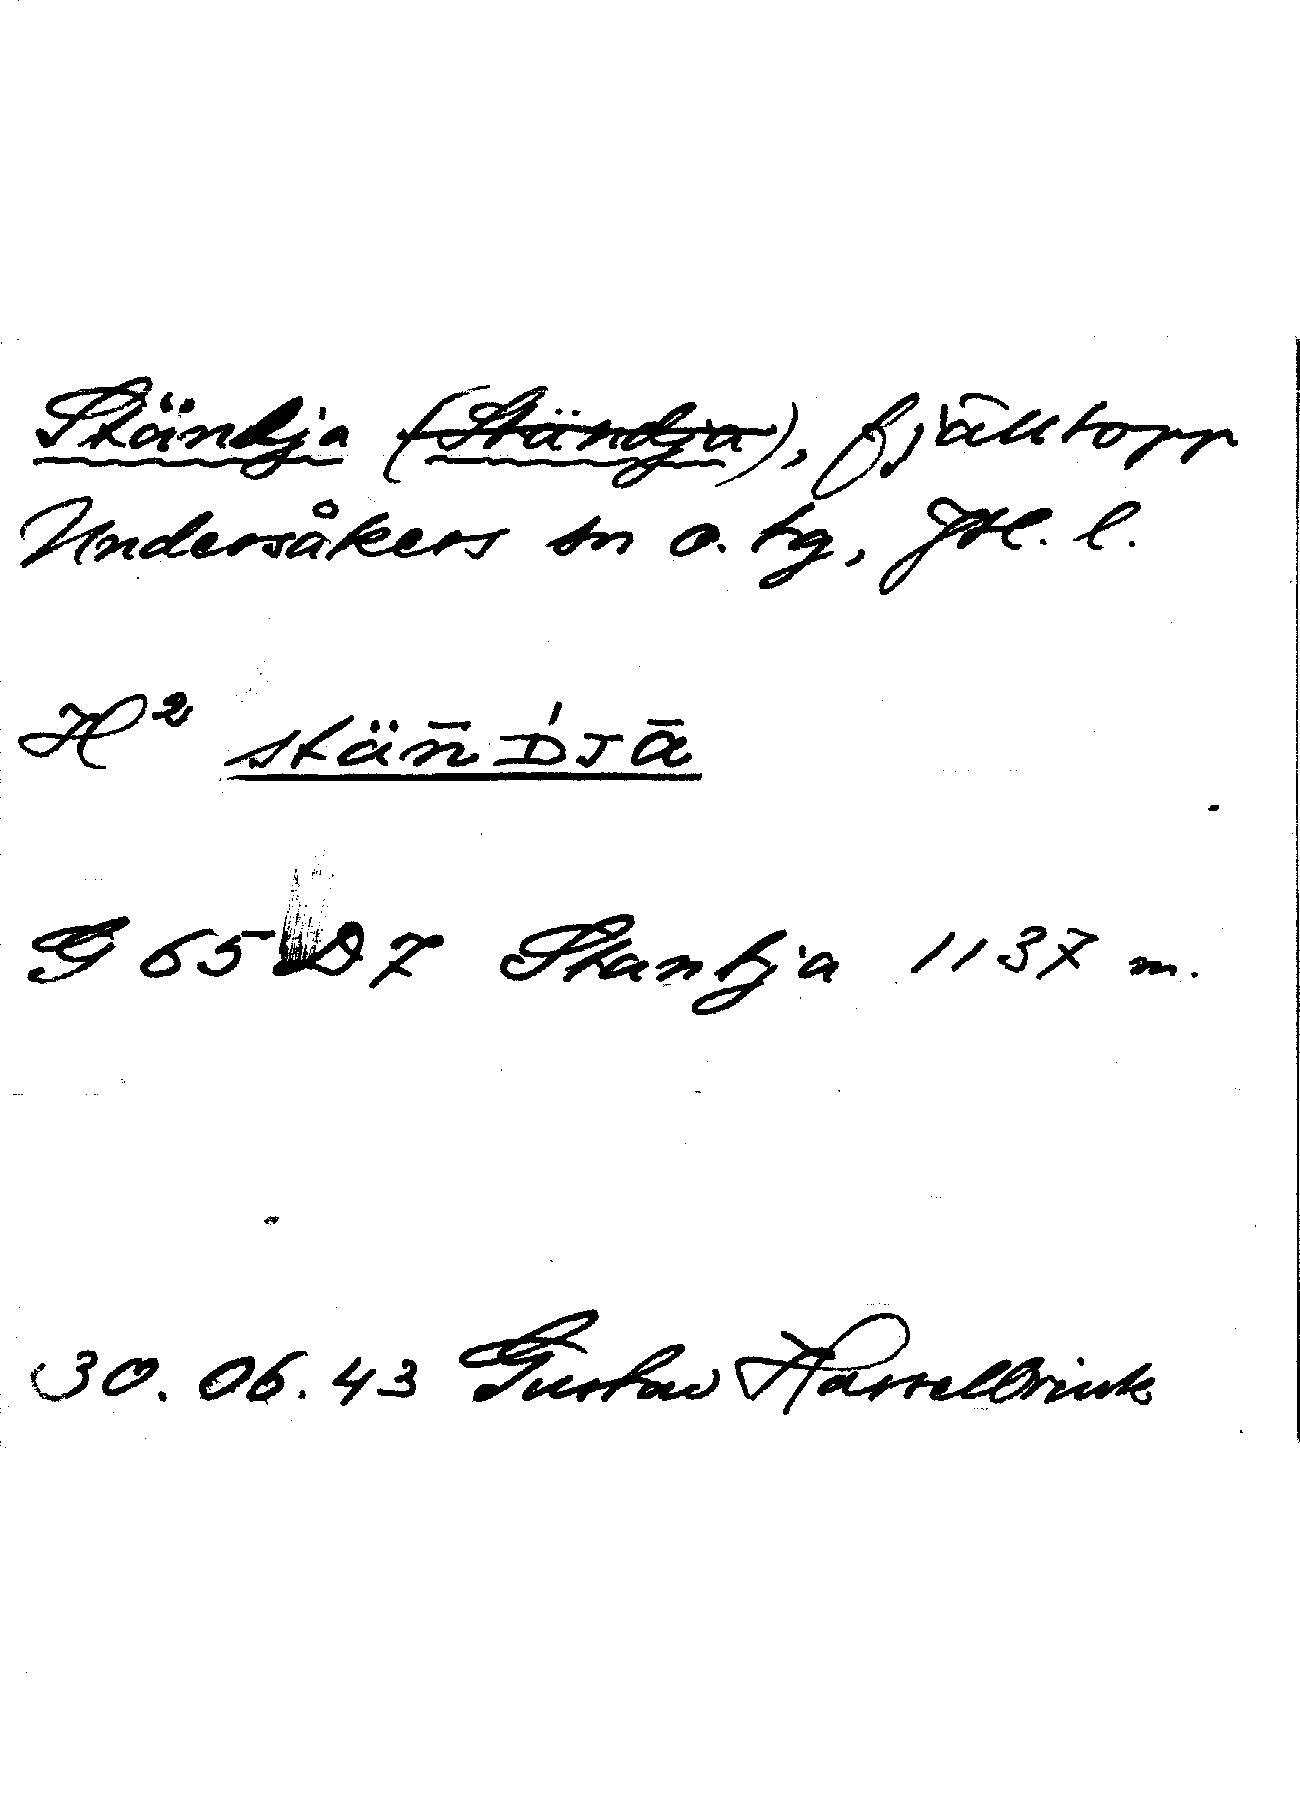 Ständja (Ständja), fjälltopp
Undersåkers sn o. tg, Jtl. l.
H² stän̄ D́ᴊā
G 65 D7 Stantja 1137 m.
30.06.43 Gustav Hasselbrink